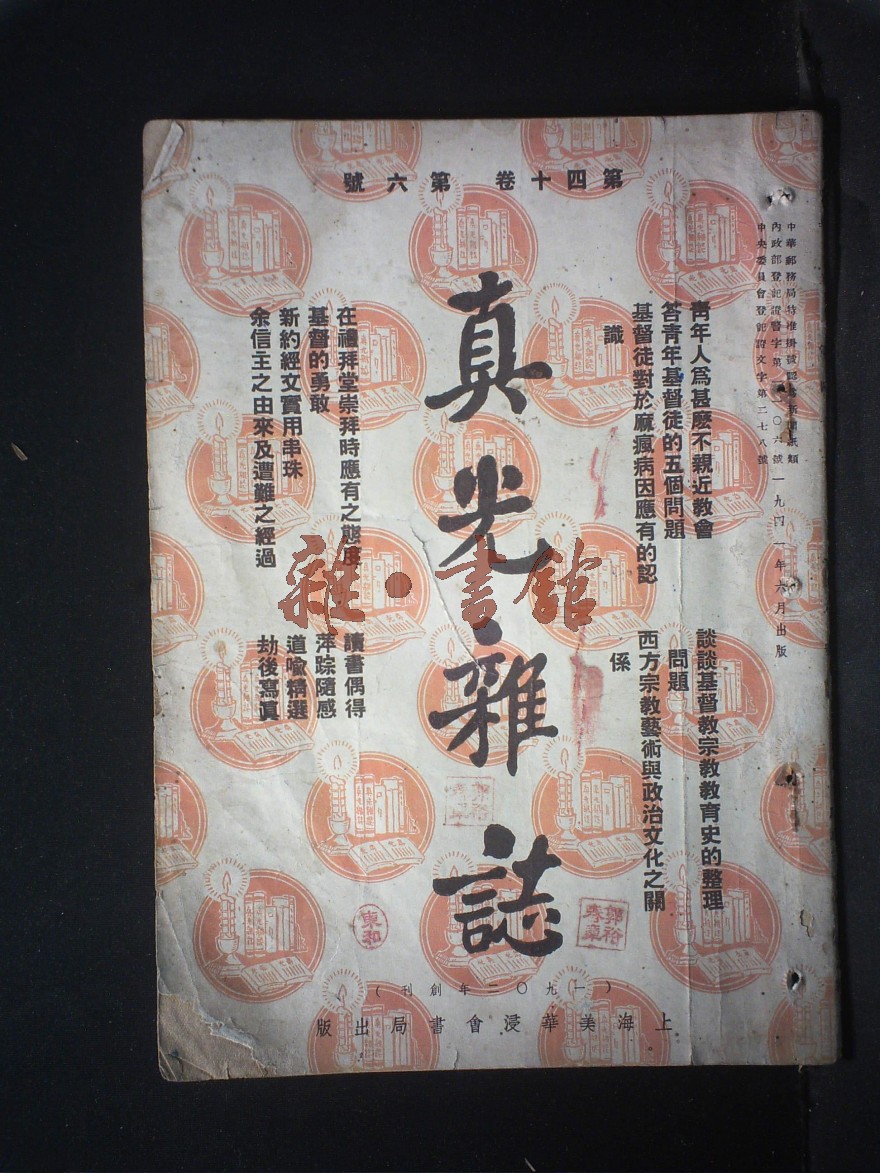 第四十卷 第六號
中華郵務局特准掛號認為新聞紙類
內政部登記證警字第 〇六號
中央委員會登記證文字第二七八號
一九四一年六月出版
靑年人爲甚麽不親近教會
答青年基督徒的五個問題
基督徒對於麻瘋病因應有的認
識
談談基督教宗教教育史的整理
問題
西方宗教藝術與政治文化之關
係
真光雜誌
在禮拜堂崇拜時應有之態度
基督的勇敢
新約經文實用串珠
余信主之由來及遭難之經過
讀書偶得
萍踪隨感
道喩精選
劫後寫眞
雜·書館
東和
(一九〇二年創刊)
上海美華浸會書局出版